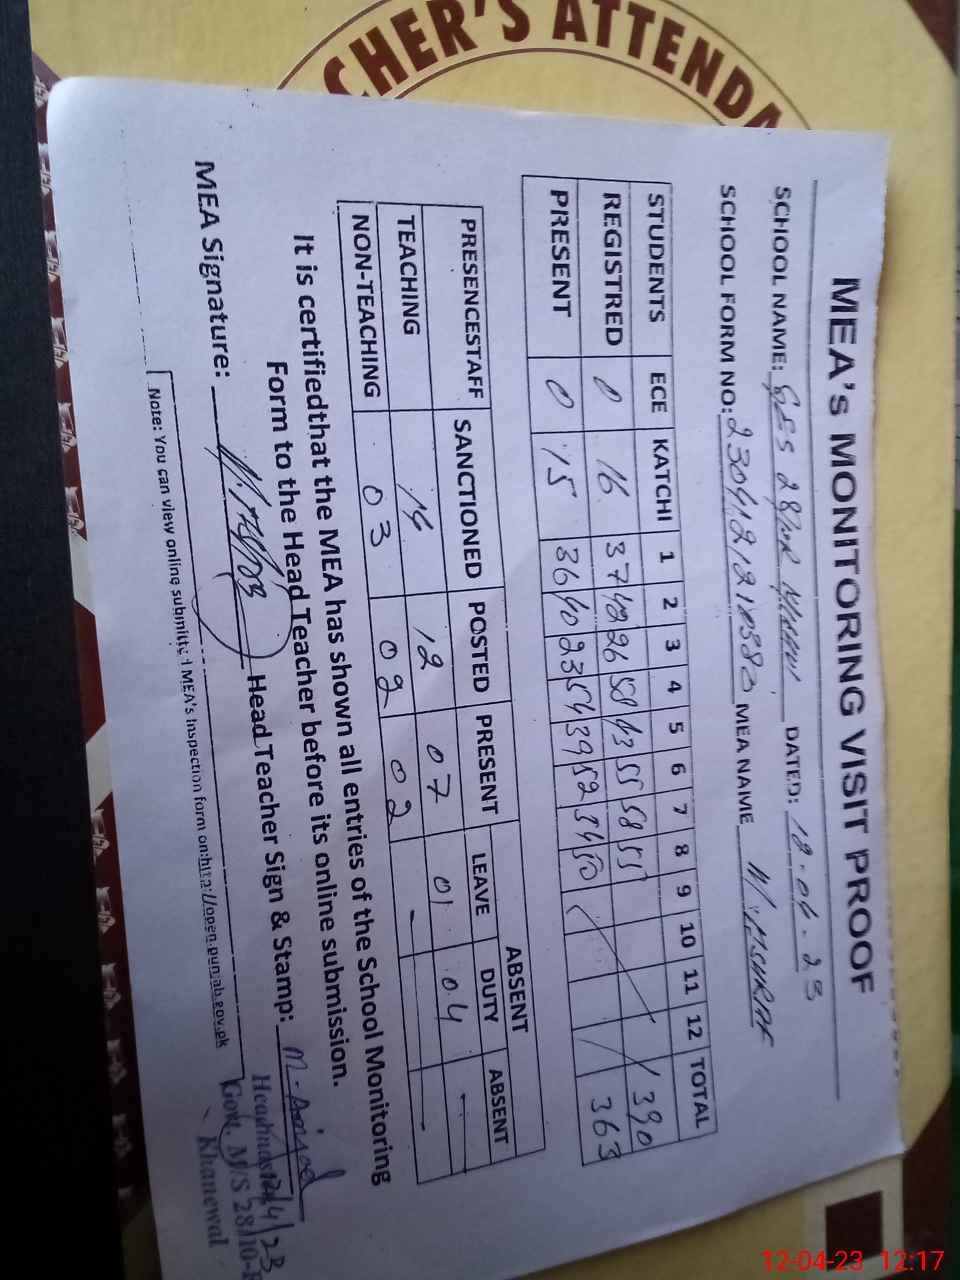 CHER'S ATTENDA
MEA's MONITORING VISIT PROOF
SCHOOL NAME: GES 28/10R DATED: 12-04-23
SCHOOL FORM NO: MEA NAME
STUDENTS ECE KATCHI 1 2 3 4 5 6 7 8 9 10 11 12 TOTAL
REGISTRED 0 16 37 42 26 58 43 55 58 55 390
PRESENT 0 15 36 40 23 54 39 52 34 50 363
ABSENT
PRESENCESTAFF SANCTIONED POSTED PRESENT LEAVE DUTY ABSENT
TEACHING 14 12 07 01 04 -
NON-TEACHING 03 02 02 - -
It is certifiedthat the MEA has shown all entries of the School Monitoring
Form to the Head Teacher before its online submission.
MEA Signature: Head Teacher Sign & Stamp:
12/4/23
Headmaster
Govt. M/S 28/10-R
Khanewal
Note: You can view online submitted MEA's Inspection form on:http://open.punjab.gov.pk
12-04-23 12:17